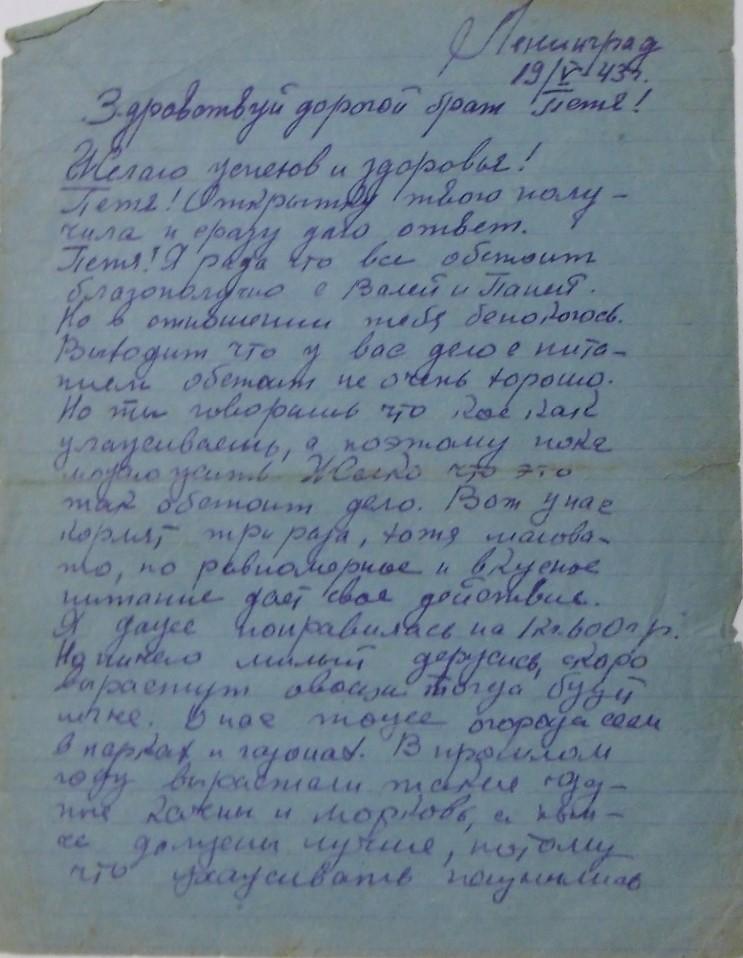 Ленинград
19/V-43г.
Здравствуй дорогой брат Петя!
Желаю успехов и здоровье!
Петя! Открытку твою полу-
чила и сразу даю ответ.
Петя! Я рада что все обстоит
благополучно с Валей и Паней.
Но в отношении тебя беспокоюсь.
Выходит что у вас дело с пита-
нием обстоит не очень хорошо.
Но ты говоришь что кое как
улаживаешь, а поэтому пока
можно жить. Жалко что это
так обстоит дело. Вот у нас
кормят три раза, хотя малова-
то, но равномерное и вкусное
питание дает свое действие.
Я даже поправилась на 1кг.600гр.
Но ничего милый держись, скоро
вырастут овощи тогда будет
легче. У нас тоже огорода сеем
в парках и газонах. В прошлом
году вырастали такие чуд-
ные кочны и морковь, а нын-
че должны лучше, потому
что ухаживать научились